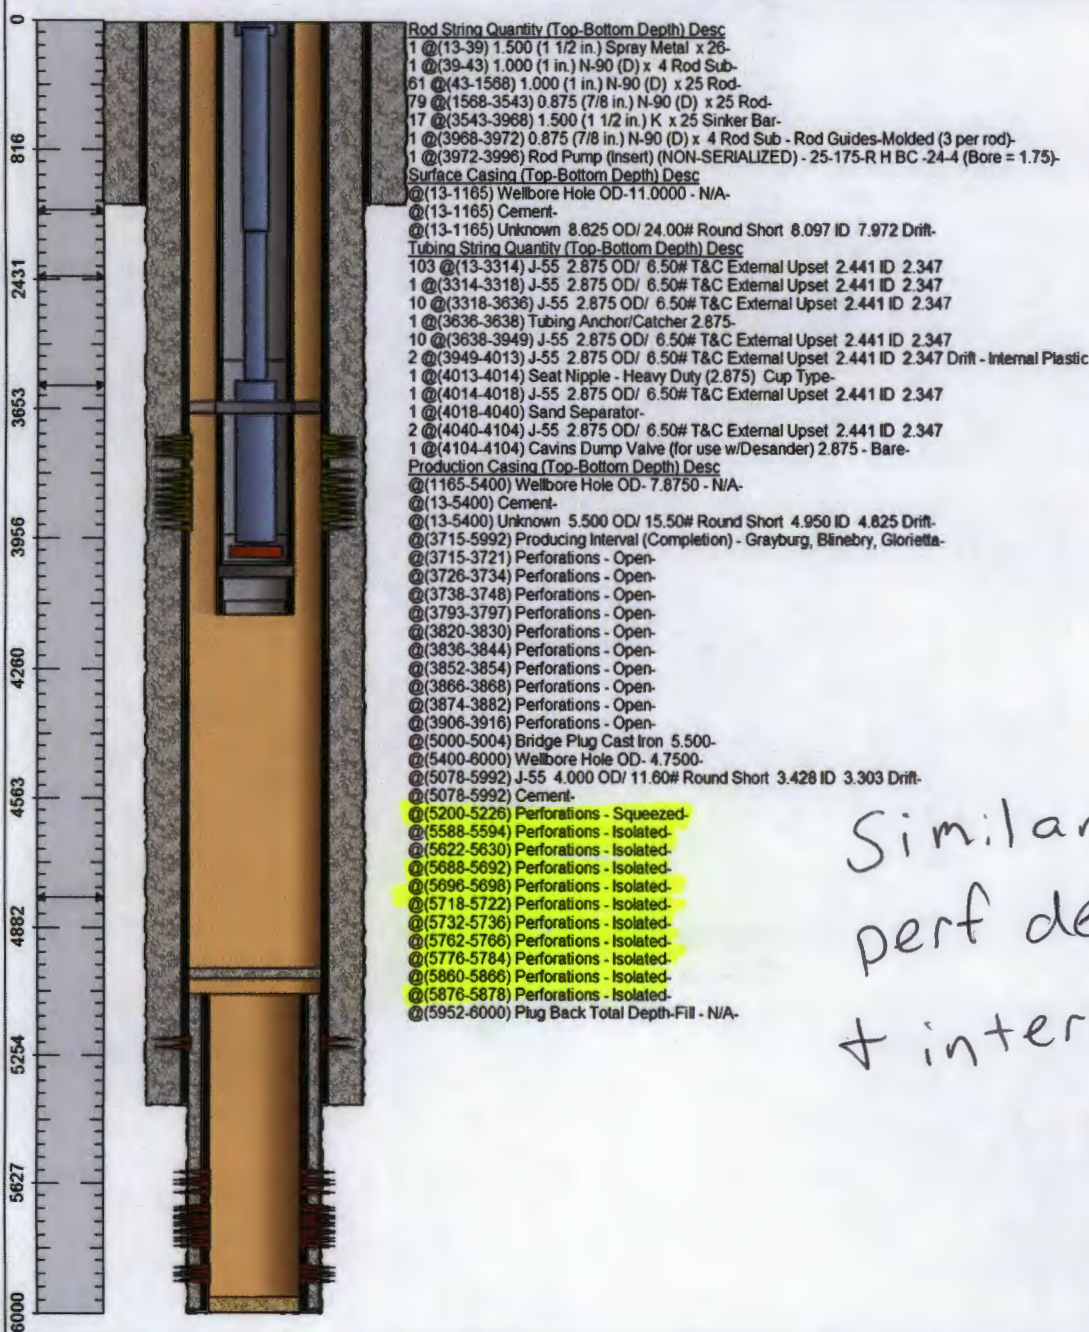 0
816
2431
3653
3956
4260
4563
4882
5254
5627
6000
Rod String Quantity (Top-Bottom Depth) Desc
1 @(13-39) 1.500 (1 1/2 in.) Spray Metal x 26-
1 @(39-43) 1.000 (1 in.) N-90 (D) x 4 Rod Sub-
61 @(43-1568) 1.000 (1 in.) N-90 (D) x 25 Rod-
79 @(1568-3543) 0.875 (7/8 in.) N-90 (D) x 25 Rod-
17 @(3543-3968) 1.500 (1 1/2 in.) K x 25 Sinker Bar-
1 @(3968-3972) 0.875 (7/8 in.) N-90 (D) x 4 Rod Sub - Rod Guides-Molded (3 per rod)-
1 @(3972-3996) Rod Pump (Insert) (NON-SERIALIZED) - 25-175-R H BC -24-4 (Bore = 1.75)-
Surface Casing (Top-Bottom Depth) Desc
@(13-1165) Wellbore Hole OD-11.0000 - N/A-
@(13-1165) Cement-
@(13-1165) Unknown 8.625 OD/ 24.00# Round Short 8.097 ID 7.972 Drift-
Tubing String Quantity (Top-Bottom Depth) Desc
103 @(13-3314) J-55 2.875 OD/ 6.50# T&C External Upset 2.441 ID 2.347
1 @(3314-3318) J-55 2.875 OD/ 6.50# T&C External Upset 2.441 ID 2.347
10 @(3318-3636) J-55 2.875 OD/ 6.50# T&C External Upset 2.441 ID 2.347
1 @(3636-3638) Tubing Anchor/Catcher 2.875-
10 @(3638-3949) J-55 2.875 OD/ 6.50# T&C External Upset 2.441 ID 2.347
2 @(3949-4013) J-55 2.875 OD/ 6.50# T&C External Upset 2.441 ID 2.347 Drift - Internal Plastic
1 @(4013-4014) Seat Nipple - Heavy Duty (2.875) Cup Type-
1 @(4014-4018) J-55 2.875 OD/ 6.50# T&C External Upset 2.441 ID 2.347
1 @(4018-4040) Sand Separator-
2 @(4040-4104) J-55 2.875 OD/ 6.50# T&C External Upset 2.441 ID 2.347
1 @(4104-4104) Cavins Dump Valve (for use w/Desander) 2.875 - Bare-
Production Casing (Top-Bottom Depth) Desc
@(1165-5400) Wellbore Hole OD- 7.8750 - N/A-
@(13-5400) Cement-
@(13-5400) Unknown 5.500 OD/ 15.50# Round Short 4.950 ID 4.825 Drift-
@(3715-5992) Producing Interval (Completion) - Grayburg, Blinebry, Glorietta-
@(3715-3721) Perforations - Open-
@(3726-3734) Perforations - Open-
@(3738-3748) Perforations - Open-
@(3793-3797) Perforations - Open-
@(3820-3830) Perforations - Open-
@(3836-3844) Perforations - Open-
@(3852-3854) Perforations - Open-
@(3866-3868) Perforations - Open-
@(3874-3882) Perforations - Open-
@(3906-3916) Perforations - Open-
@(5000-5004) Bridge Plug Cast Iron 5.500-
@(5400-6000) Wellbore Hole OD- 4.7500-
@(5078-5992) J-55 4.000 OD/ 11.60# Round Short 3.428 ID 3.303 Drift-
@(5078-5992) Cement-
@(5200-5226) Perforations - Squeezed-
@(5588-5594) Perforations - Isolated-
@(5622-5630) Perforations - Isolated-
@(5688-5692) Perforations - Isolated-
@(5696-5698) Perforations - Isolated-
@(5718-5722) Perforations - Isolated-
@(5732-5736) Perforations - Isolated-
@(5762-5766) Perforations - Isolated-
@(5776-5784) Perforations - Isolated-
@(5860-5866) Perforations - Isolated-
@(5876-5878) Perforations - Isolated-
@(5952-6000) Plug Back Total Depth-Fill - N/A-
Similar
perf de
+ inter